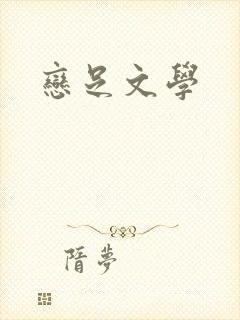 戀足文學
隋夢